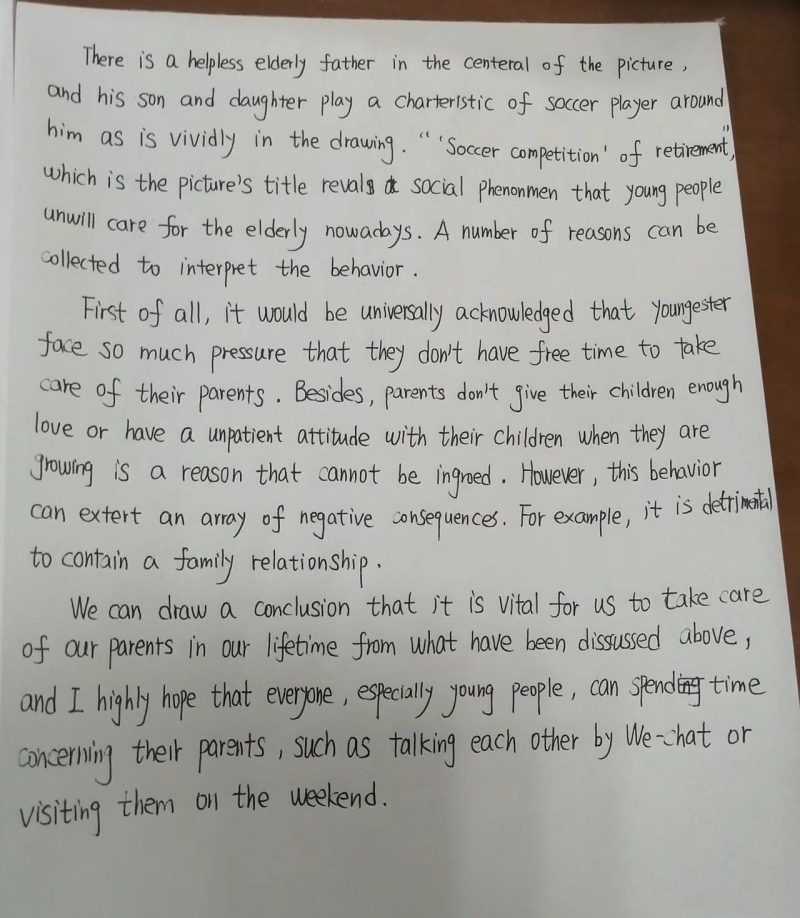 There is a helpless elderly father in the centeral of the picture,
and his son and daughter play a charteristic of soccer player around
him as is vividly in the drawing. “ ‘Soccer competition’ of retirement”,
which is the picture's title revals a social phenonmen that young people
unwill care for the elderly nowadays. A number of reasons can be
collected to interpret the behavior.
First of all, it would be universally acknowledged that youngester
face so much pressure that they don't have free time to take
care of their parents. Besides, parents don't give their children enough
love or have a unpatient attitude with their children when they are
growing is a reason that cannot be ingroed. However, this behavior
can extert an array of negative consequences. For example, it is detrimental
to contain a family relationship.
We can draw a conclusion that it is vital for us to take care
of our parents in our lifetime from what have been dissussed above,
and I highly hope that everyone, especially young people, can spend time
concerning their parents, such as talking each other by We-chat or
visiting them on the weekend.